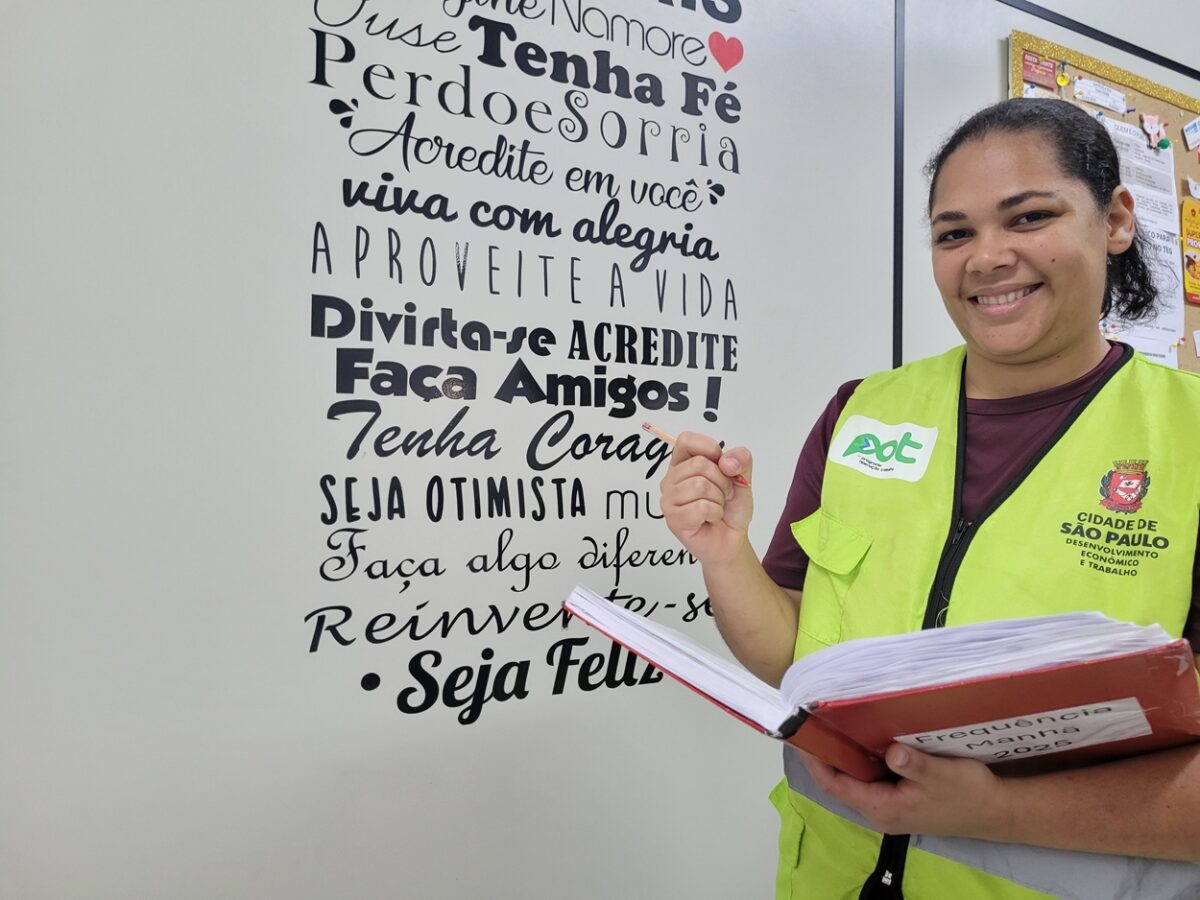 Namore
Ouse Tenha Fé
PerdoeSorria
Acredite em você
viva com alegria
APROVEITE A VIDA
Divirta-se ACREDITE
Faça Amigos!
Tenha Corag
SEJA OTIMISTA mu
Faça algo diferen
Reinvente-se
• Seja Feliz
pot
CIDADE DE
SÃO PAULO
DESENVOLVIMENTO
ECONÔMICO
E TRABALHO
Frequência
Manhã
2025